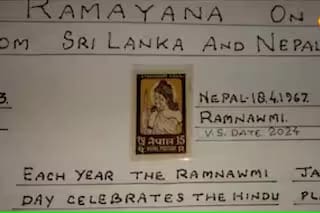 RAMAYANA ON
OM SRI LANKA AND NEPAL
3.
NEPAL-18.4.1967.
RAMNAWMI.
V.S. DATE 2024
नेपाल 15
NEPAL POSTAGE
EACH YEAR THE RAMNAWMI
JA
DAY CELEBRATES THE HINDU
PL